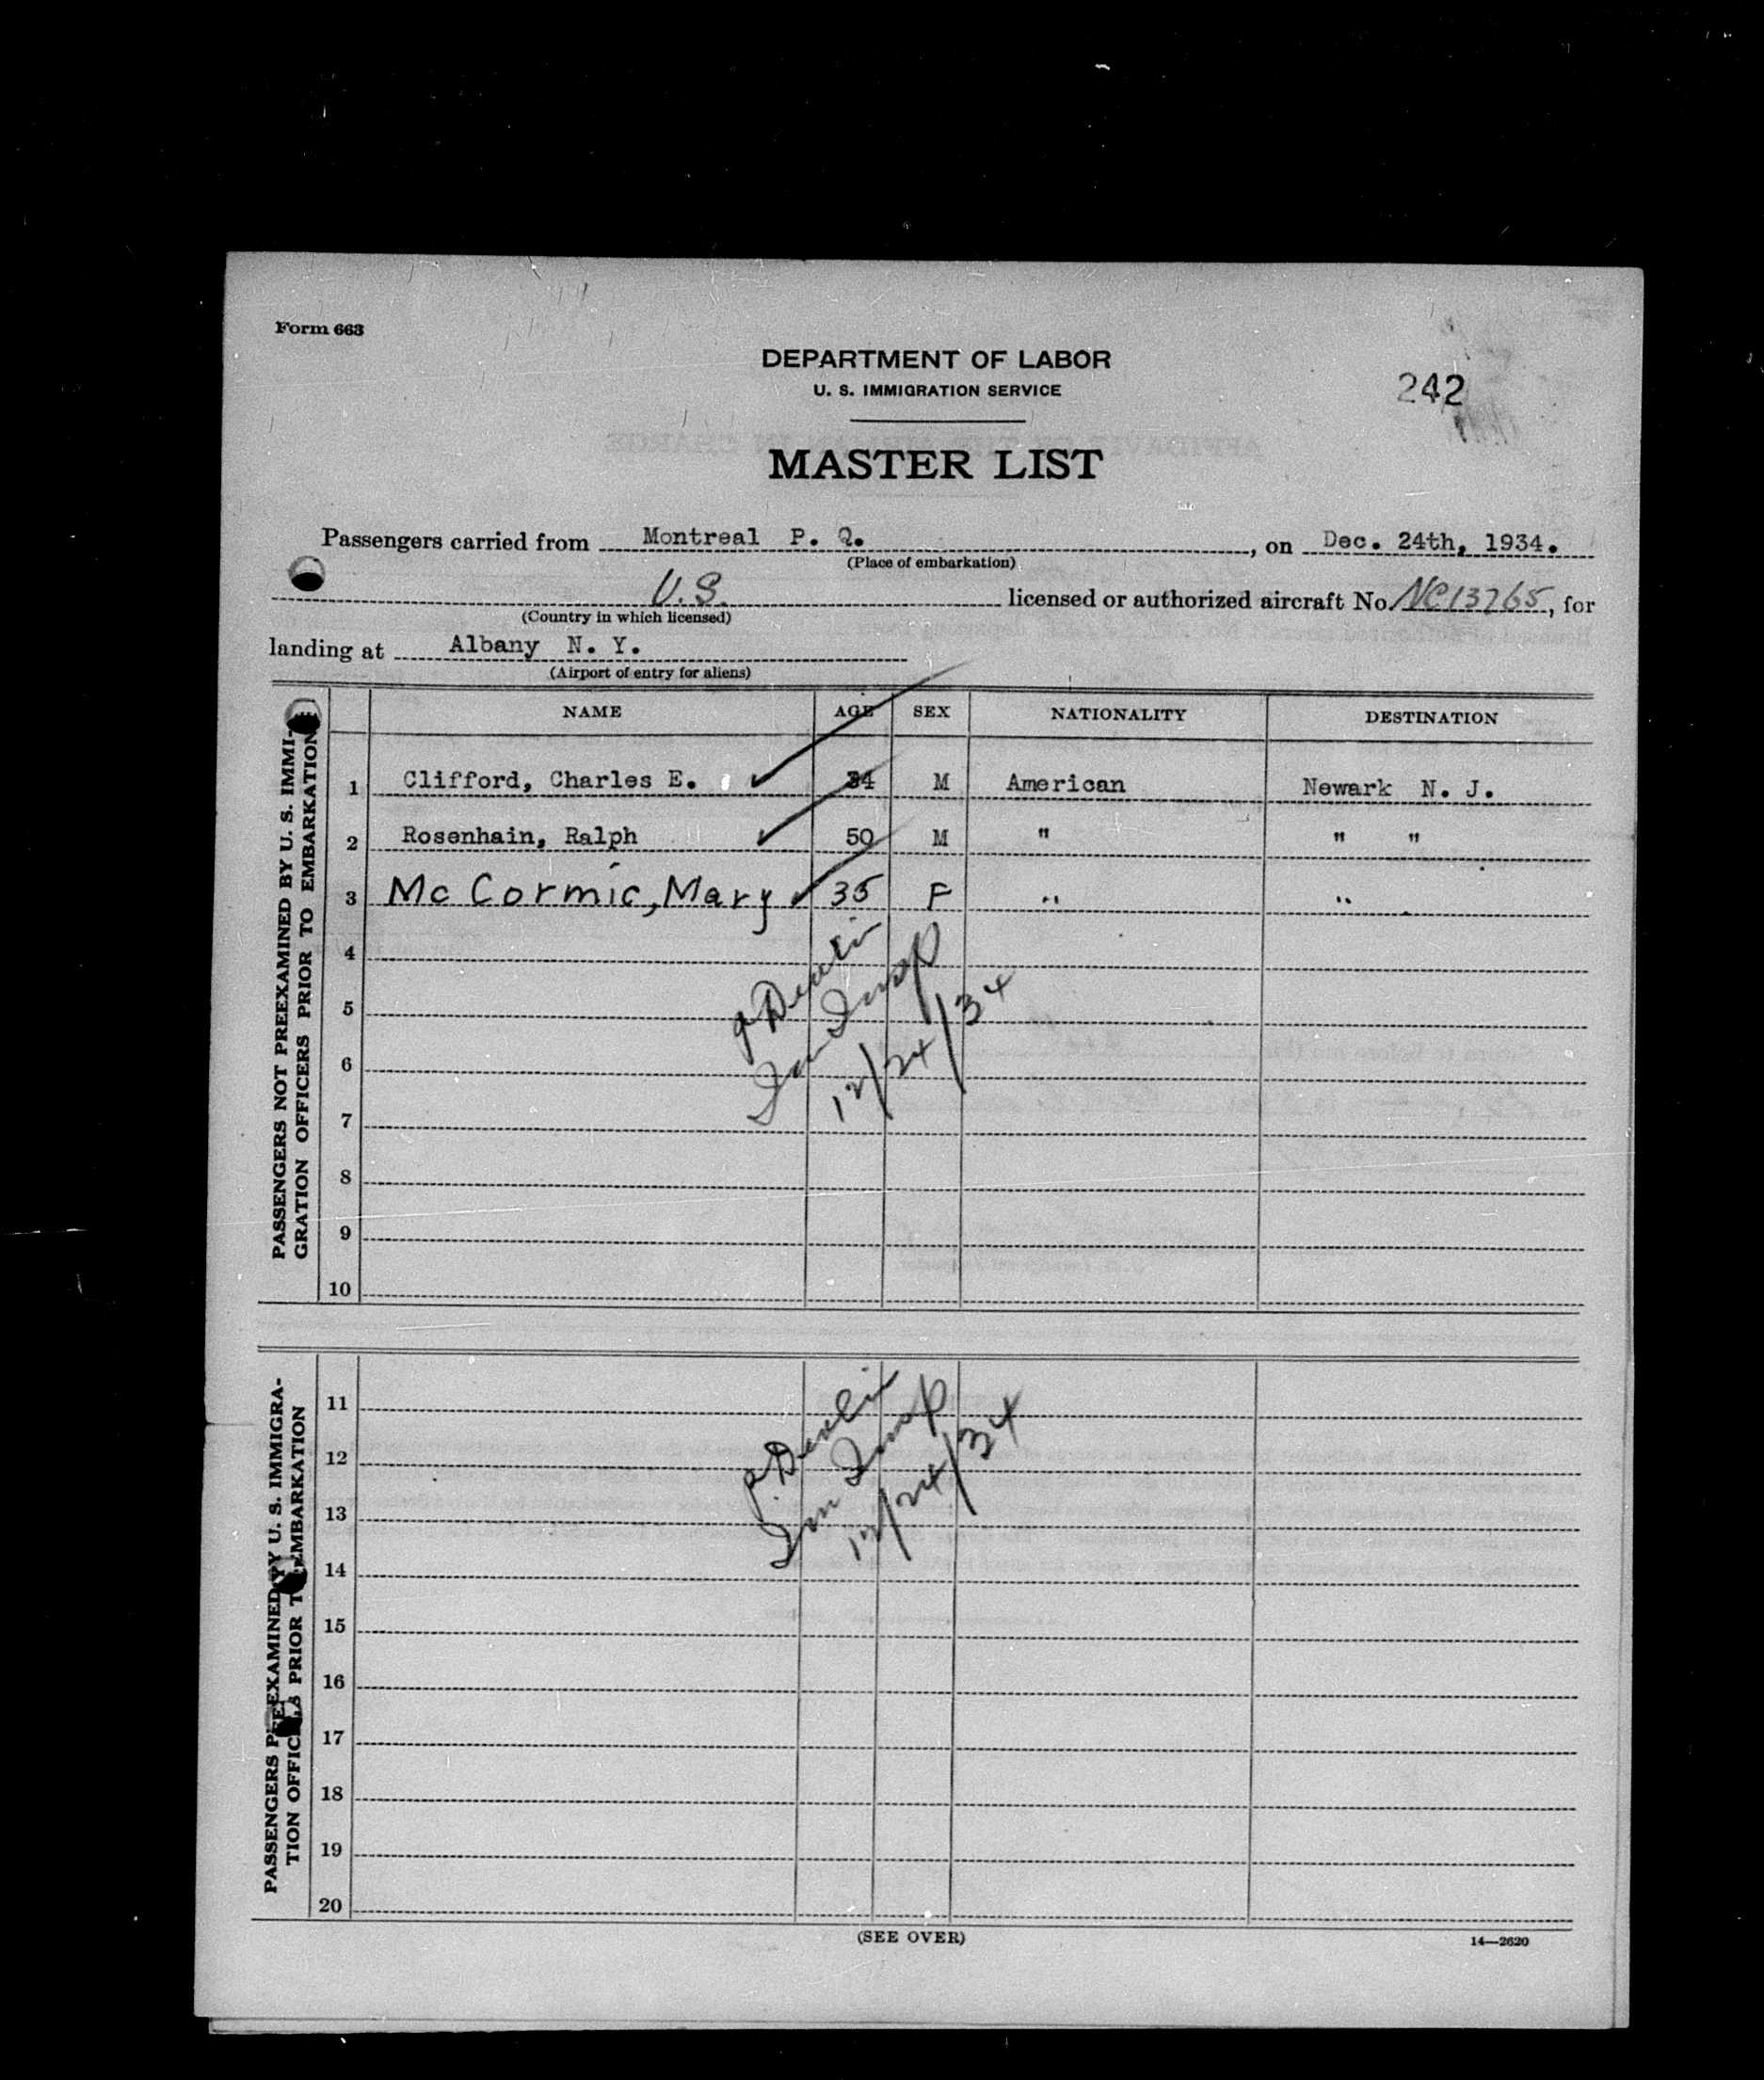 Form 663
DEPARTMENT OF LABOR
U. S. IMMIGRATION SERVICE
242
MASTER LIST
Passengers carried from Montreal P. Q. , on Dec. 24th, 1934.
(Place of embarkation)
U.S. licensed or authorized aircraft No. NC13765, for
(Country in which licensed)
landing at Albany N. Y.
(Airport of entry for aliens)
NAME AGE SEX NATIONALITY DESTINATION
PASSENGERS NOT PREEXAMINED BY U. S. IMMI-
GRATION OFFICERS PRIOR TO EMBARKATION
1 Clifford, Charles E. 34 M American Newark N. J.
2 Rosenhain, Ralph 50 M " " "
3 Mc Cormic, Mary 35 F " "
4
5
6
7
8
9
10
Devlin
Imm Insp
12/24/34
PASSENGERS PREEXAMINED BY U. S. IMMIGRA-
TION OFFICERS PRIOR TO EMBARKATION
11
12
13
14
15
16
17
18
19
20
Devlin
Imm Insp
12/24/34
(SEE OVER)
14—2620